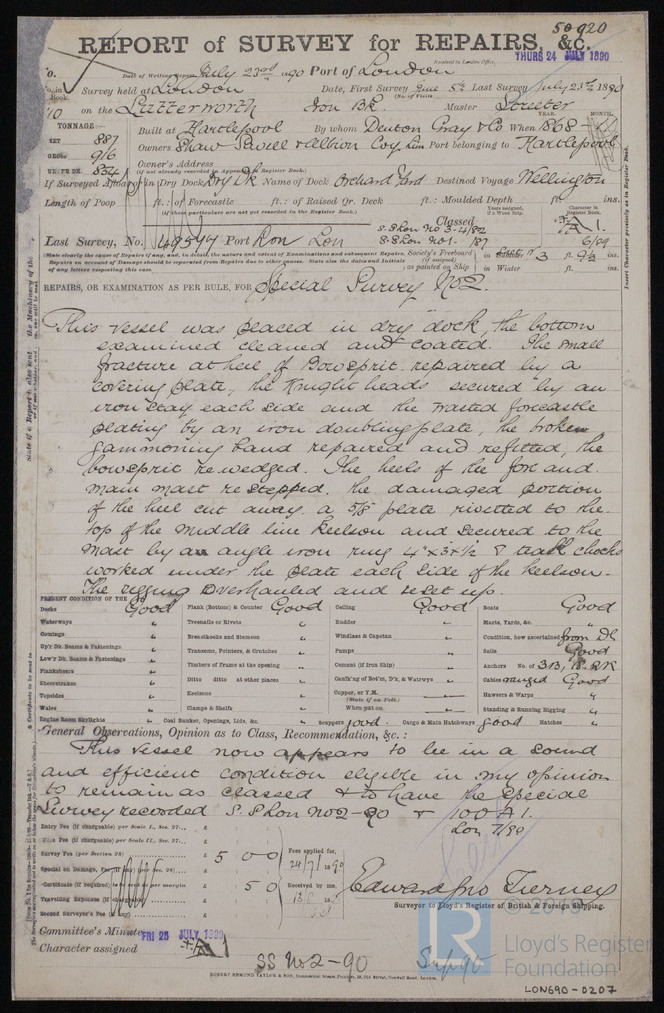 50920
REPORT of SURVEY for REPAIRS, &c.
Received in London Office, THURS 24 JULY 1890
No. Date of Writing Report July 23rd 1890 Port of London
Survey held at London Date, First Survey June 5th Last Survey July 23rd 1890
on the Lutterworth Iron Bk. Master Streeter
TONNAGE
YEAR. MONTH.
NET 887 Built at Hartlepool By whom Denton Gray & Co When 1868
GROSS 916 Owners Shaw Savill & Albion Coy. Lim Port belonging to Hartlepool
UNDER DK. 834 Owner's Address
(if not already recorded in Appendix to Register Book.)
If Surveyed Afloat or in Dry Dock Dry Dk Name of Dock Orchard Yard Destined Voyage Wellington
Length of Poop ft.: of Forecastle ft.: of Raised Qr. Deck ft.: Moulded Depth ft. ins.
(if these particulars are not yet recorded in the Register Book.)
Classed A 1.
S.S Lon No 3-4/82
Last Survey, No. 49544 Port Lon Lon S.S Lon No 1. /87 6/89
Society's Freeboard (if assigned) as painted on Ship
in 3 ft. 9½ ins.
in Winter ft. ins.
REPAIRS, OR EXAMINATION AS PER RULE, FOR Special Survey No 2.
This vessel was placed in dry dock, the bottom
examined cleaned and coated. The small
fracture at heel of Bowsprit repaired by a
covering plate, the Knight heads secured by an
iron stay each side and the wasted forecastle
plating by an iron doubling plate, the broken
gammoning band repaired and refitted, the
bowsprit re wedged. The heels of the fore and
main mast re stepped, the damaged portion
of the heel cut away. a 5/8 plate rivetted to the
top of the middle line keelson and secured to the
mast by an angle iron ring 4 x 3 x ½ & teak chocks
worked under the plate each side of the keelson.
The rigging overhauled and reset up.
PRESENT CONDITION OF THE
Decks Good Plank (Bottom) & Counter Good Ceiling Good Boats Good
Waterways " Treenails or Rivets " Rudder " Masts, Yards, &c. "
Comings " Breasthooks and Stemson " Windlass & Capstan " Condition, how ascertained from Dk
Up'r Dk. Beams & Fastenings " Transoms, Pointers, & Crutches " Pumps " Sails Good
Low'r Dk. Beams & Fastenings " Timbers of Frame at the opening " Cement (if Iron Ship) " Anchors No. of 3B, 1S. 2K
Planksheers " Ditto ditto at other places " Caulk'g of Bot'm, D'k, & Watrwys " Cables ranged Good
Sheerstrakes " Keelsons " Copper, or Y.M. Hawsers & Warps "
Topsides " Clamps & Shelfs " (State if on Felt.) Standing & Running Rigging "
Wales " When put on.
Engine Room Skylights Coal Bunker, Openings, Lids, &c. Scuppers good. Cargo & Main Hatchways good Hatches "
General Observations, Opinion as to Class, Recommendation, &c. :
This vessel now appears to be in a sound
and efficient condition eligible in my opinion
to remain as classed & to have the Special
Survey recorded S.S Lon No 2-90 & 100 A 1.
Lon 7/90
Entry Fee (if chargeable) per Scale I., Sec. 27... £
Survey Fee (per Section 28) £ 5 0 0
Fees applied for, 24/7/1890
Special on Damage, Fee £
Certificate (if required) £ 5 0
Received by me,
Travelling Expenses (if chargeable) £
Second Surveyor's Fee (if any) £
Edward Jno Tierney
Surveyor to Lloyd's Register of British & Foreign Shipping.
Committee's Minute FRI 25 JULY 1890
Character assigned A 1
SS No 2-90
ROBERT EDMUND TAYLOR & SON
LR
Lloyd's Register
Foundation
LON690-0207